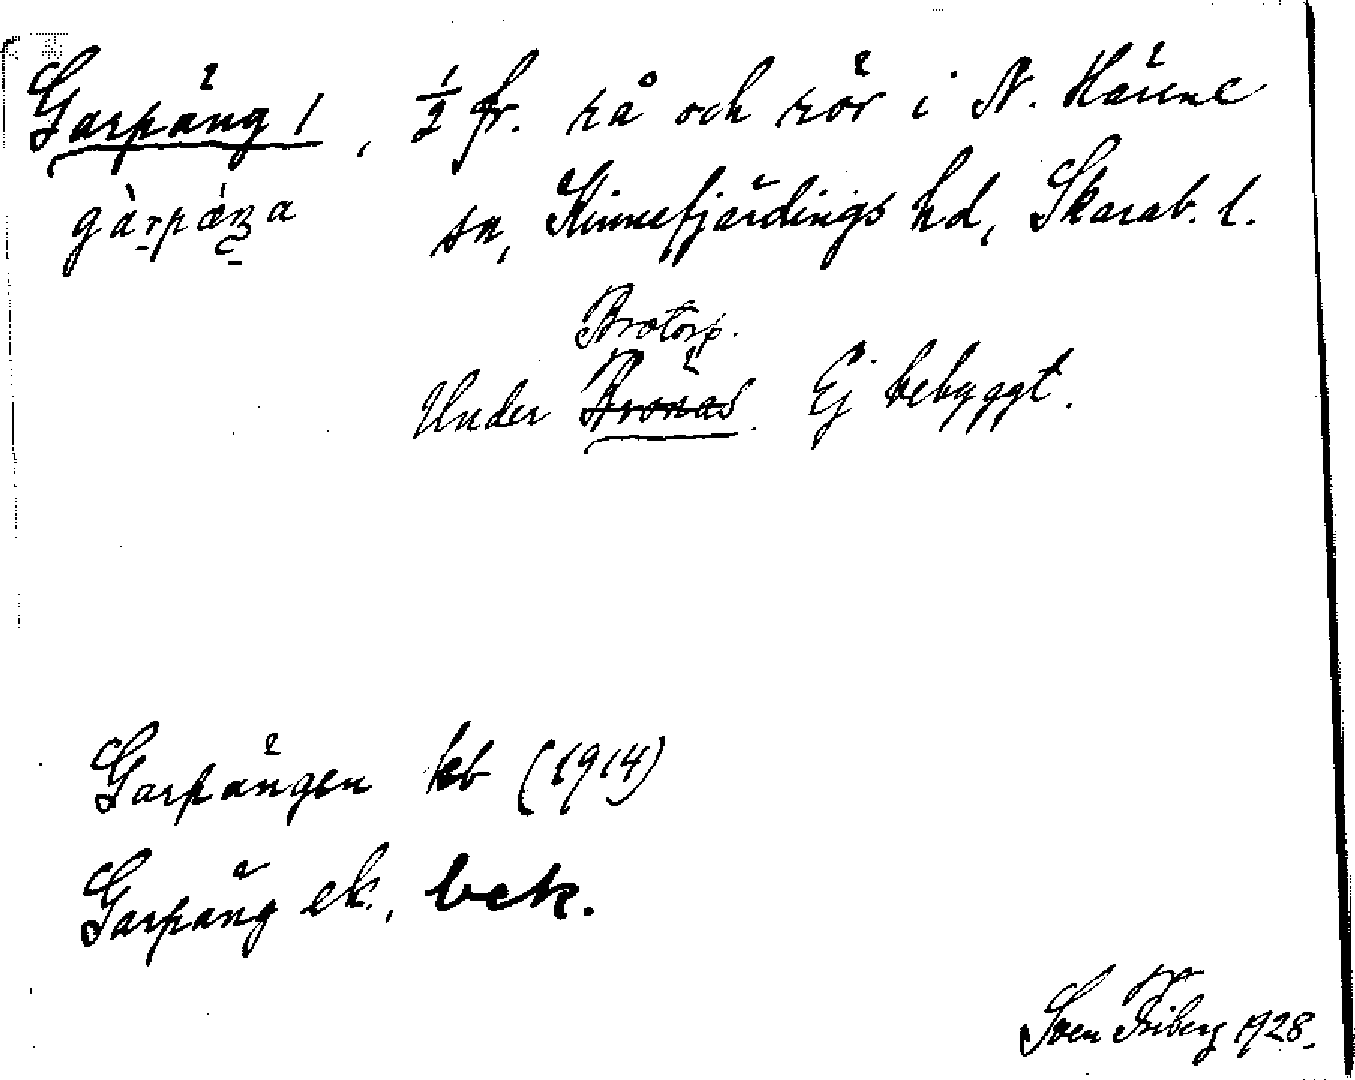 Garpäng 1, ½ fr. rå och rör i N. Härene
gàrpáŋa sn, Kinnefjärdings hd, Skarab. l.
Brotorp.
Under Bronäs. Ej bebyggt.
Garpängen kb (1914)
Garpäng ek., bek.
Sven Friberg 1928.